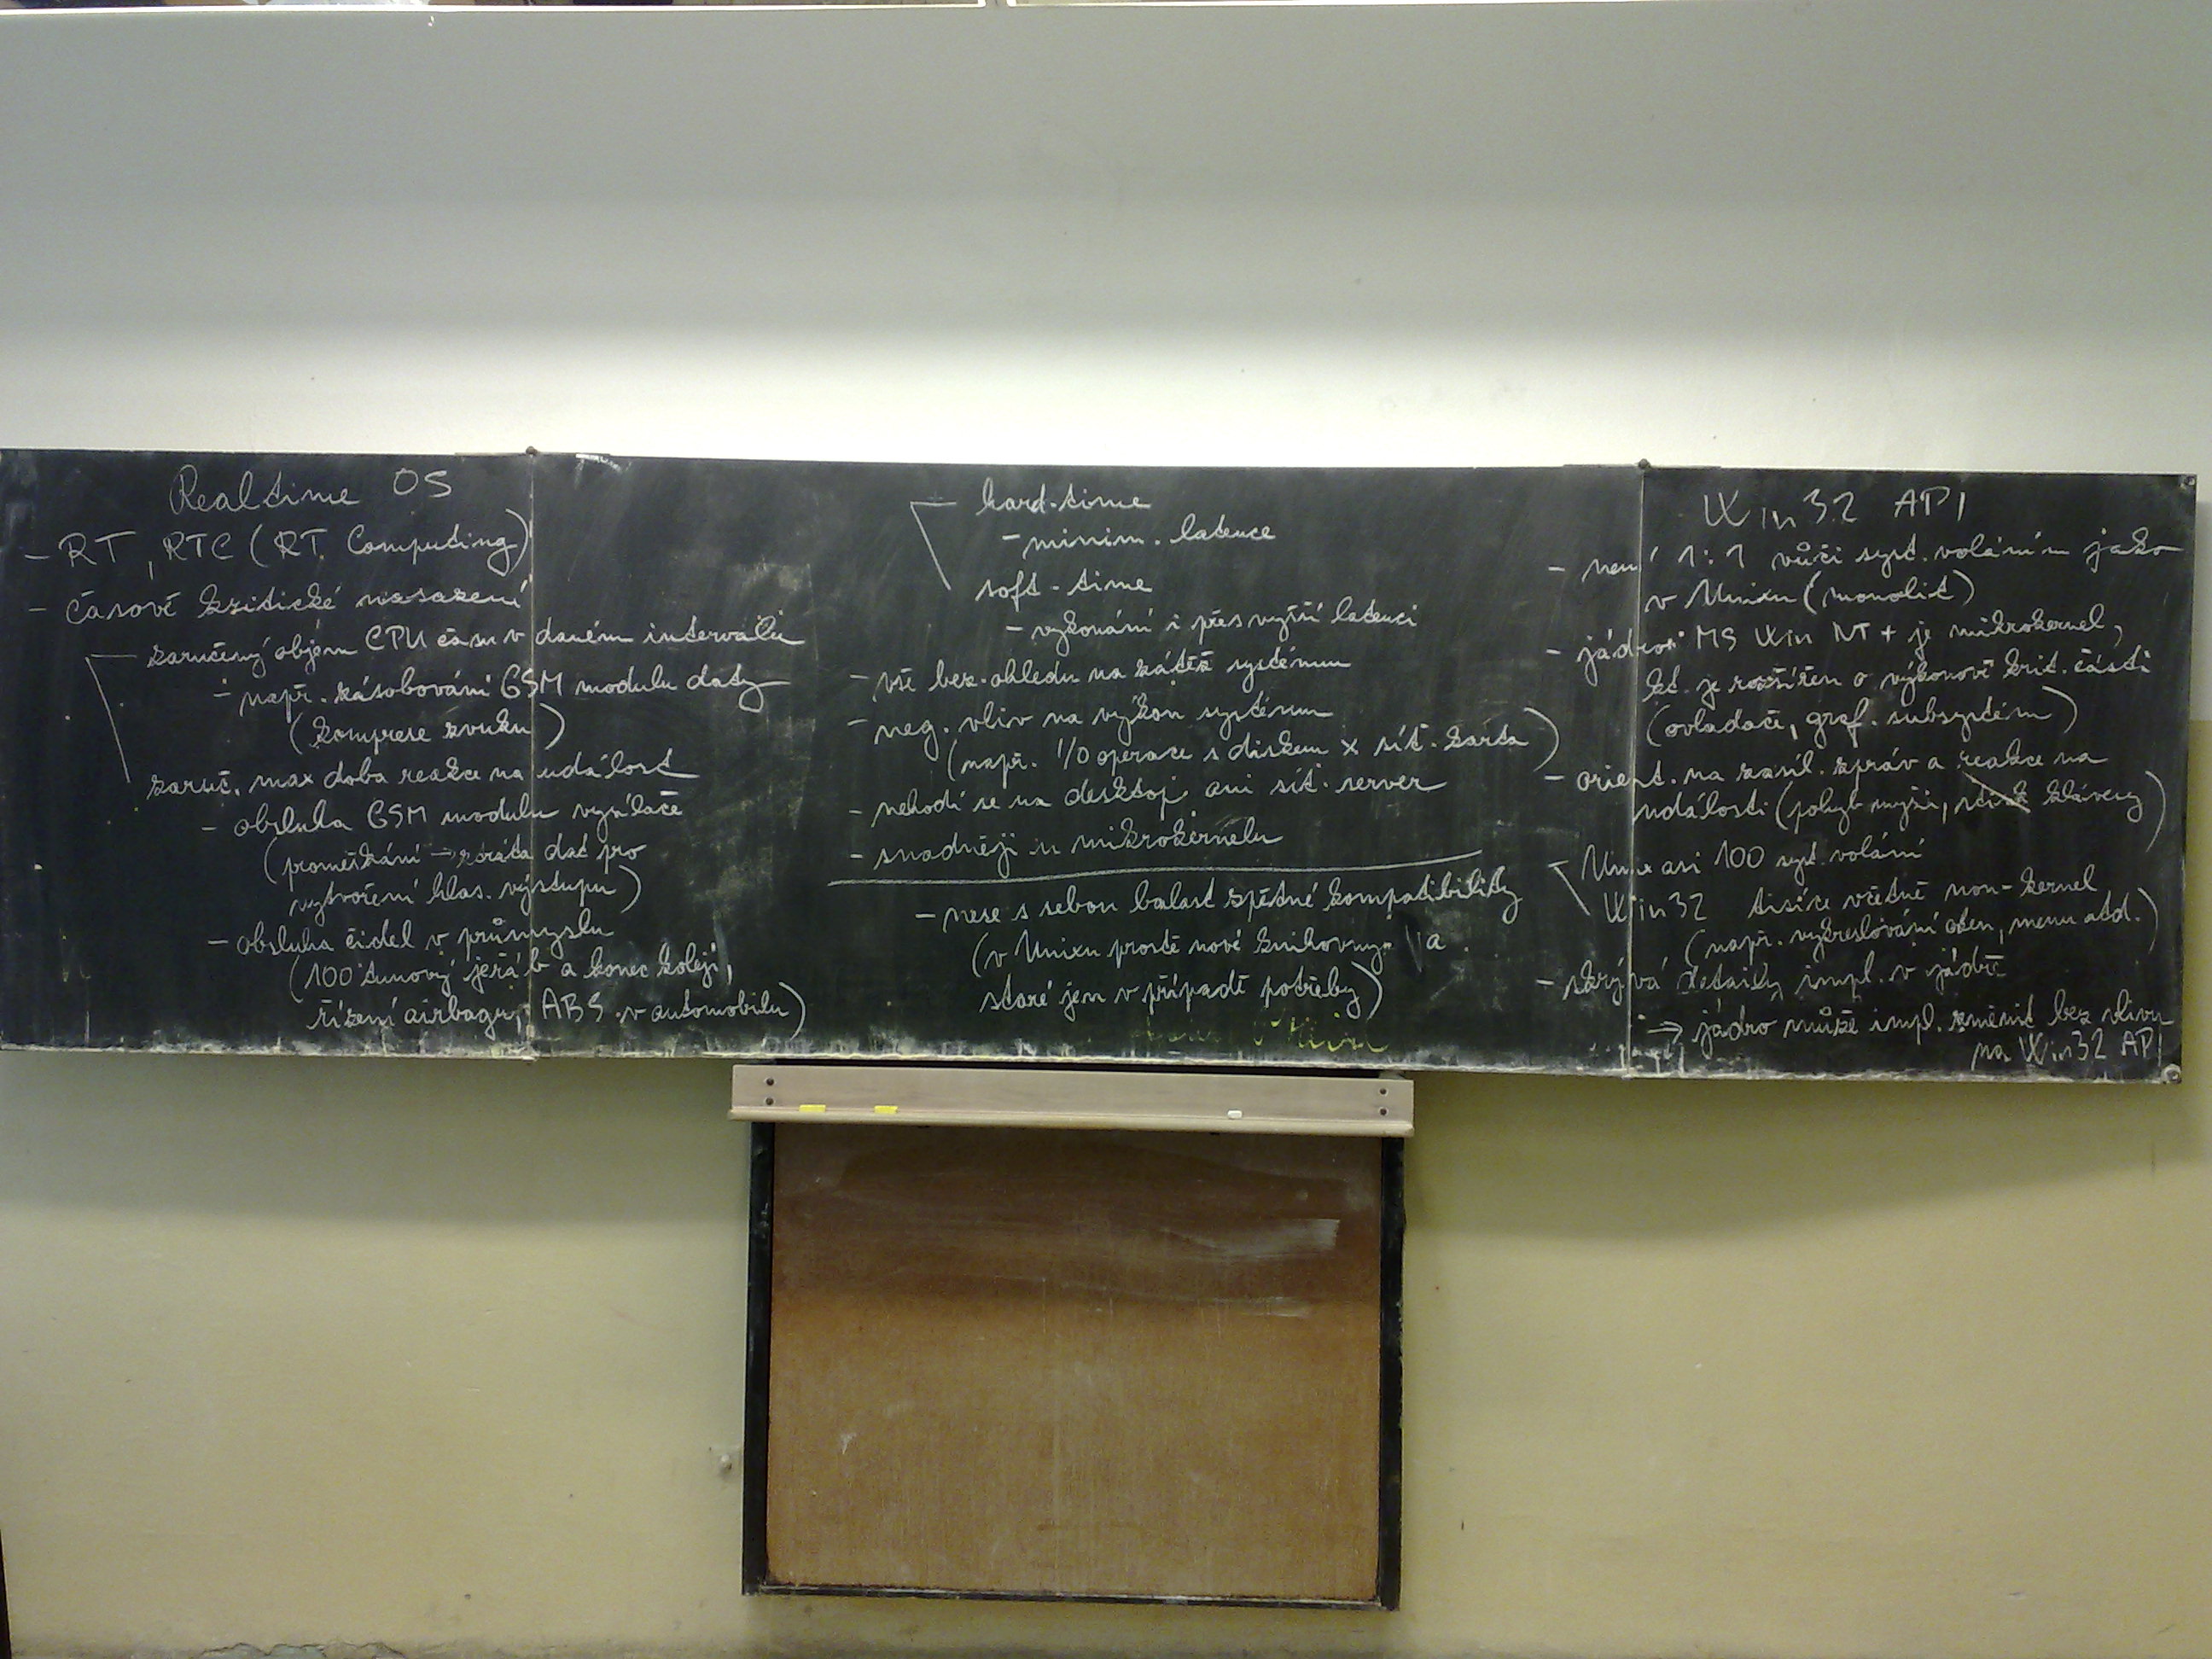 Realtime OS
- RT, RTC (RT Computing)
- časově kritické nasazení
zaručený objem CPU času v daném intervalu
- např. zásobování GSM modulu daty
(komprese zvuku)
zaruč. max doba reakce na událost
- obsluha GSM modulu vysílače
(promeškání → ztráta dat pro
vytvoření hlas. výstupu)
- obsluha čidel v průmyslu
(100 tunový jeřáb a konec kolejí,
řízení airbagu, ABS v automobilu)
hard-time
- minim. latence
soft-time
- vykonání i přes vyšší latenci
- vše bez ohledu na zátěž systému
- neg. vliv na výkon systému
(např. I/O operace s diskem x síť. karta)
- nehodí se na desktop ani síť. server
- snadněji u mikrokernelu
- nese s sebou balast zpětné kompatibility
(v Unixu prostě nové knihovny a
staré jen v případě potřeby)
Win32 API
- není 1:1 vůči syst. voláním jako
v Unixu (monolit)
- jádro MS Win NT + je mikrokernel,
kt. je rozšířen o výkonově krit. části
(ovladače, graf. subsystém)
- orient. na zasíl. zpráv a reakce na
události (pohyb myši, stisk klávesy)
Unix asi 100 syst. volání
Win32 tisíce včetně non-kernel
(např. vykreslování oken, menu atd.)
- skrývá detaily impl. v jádře
→ jádro může impl. změnit bez vlivu
na Win32 API